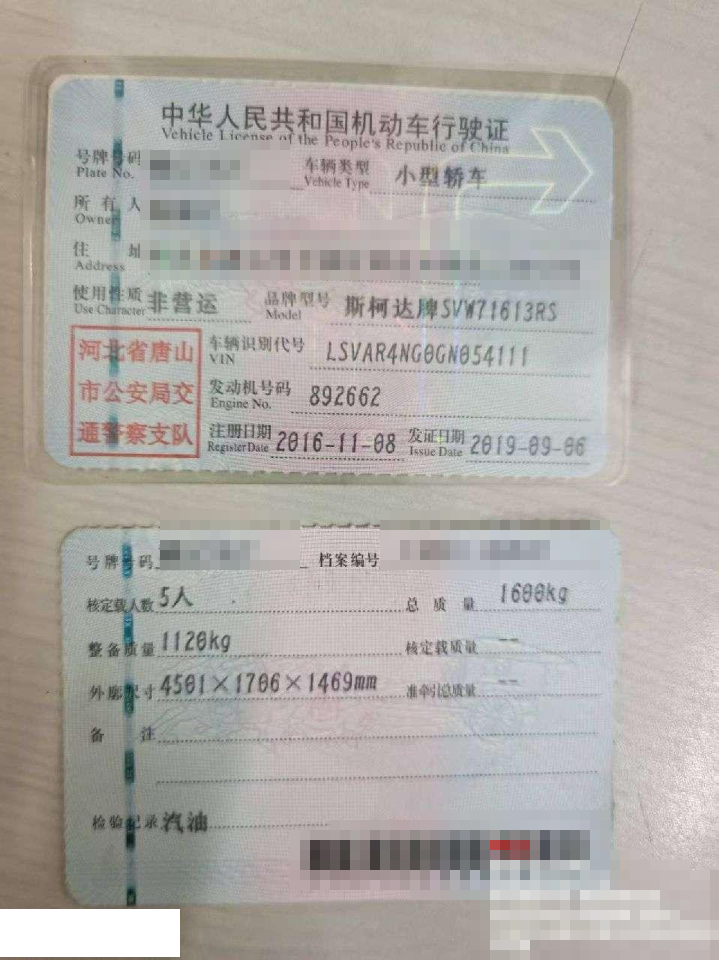 中华人民共和国机动车行驶证
Vehicle License of the People's Republic of China
号牌号码 车辆类型 小型轿车
Plate No. Vehicle Type
所有人
Owner
住址
Address
使用性质 非营运 品牌型号 斯柯达牌SVW71613RS
Use Character Model
河北省唐山
市公安局交
通警察支队
车辆识别代号 LSVAR4NG0GN054111
VIN
发动机号码 892662
Engine No.
注册日期 2016-11-08 发证日期 2019-09-06
Register Date Issue Date
号牌号码 档案编号
核定载人数 5人 总质量 1600kg
整备质量 1120kg 核定载质量 --
外廓尺寸 4501×1706×1469mm 准牵引总质量 --
备注
检验记录 汽油